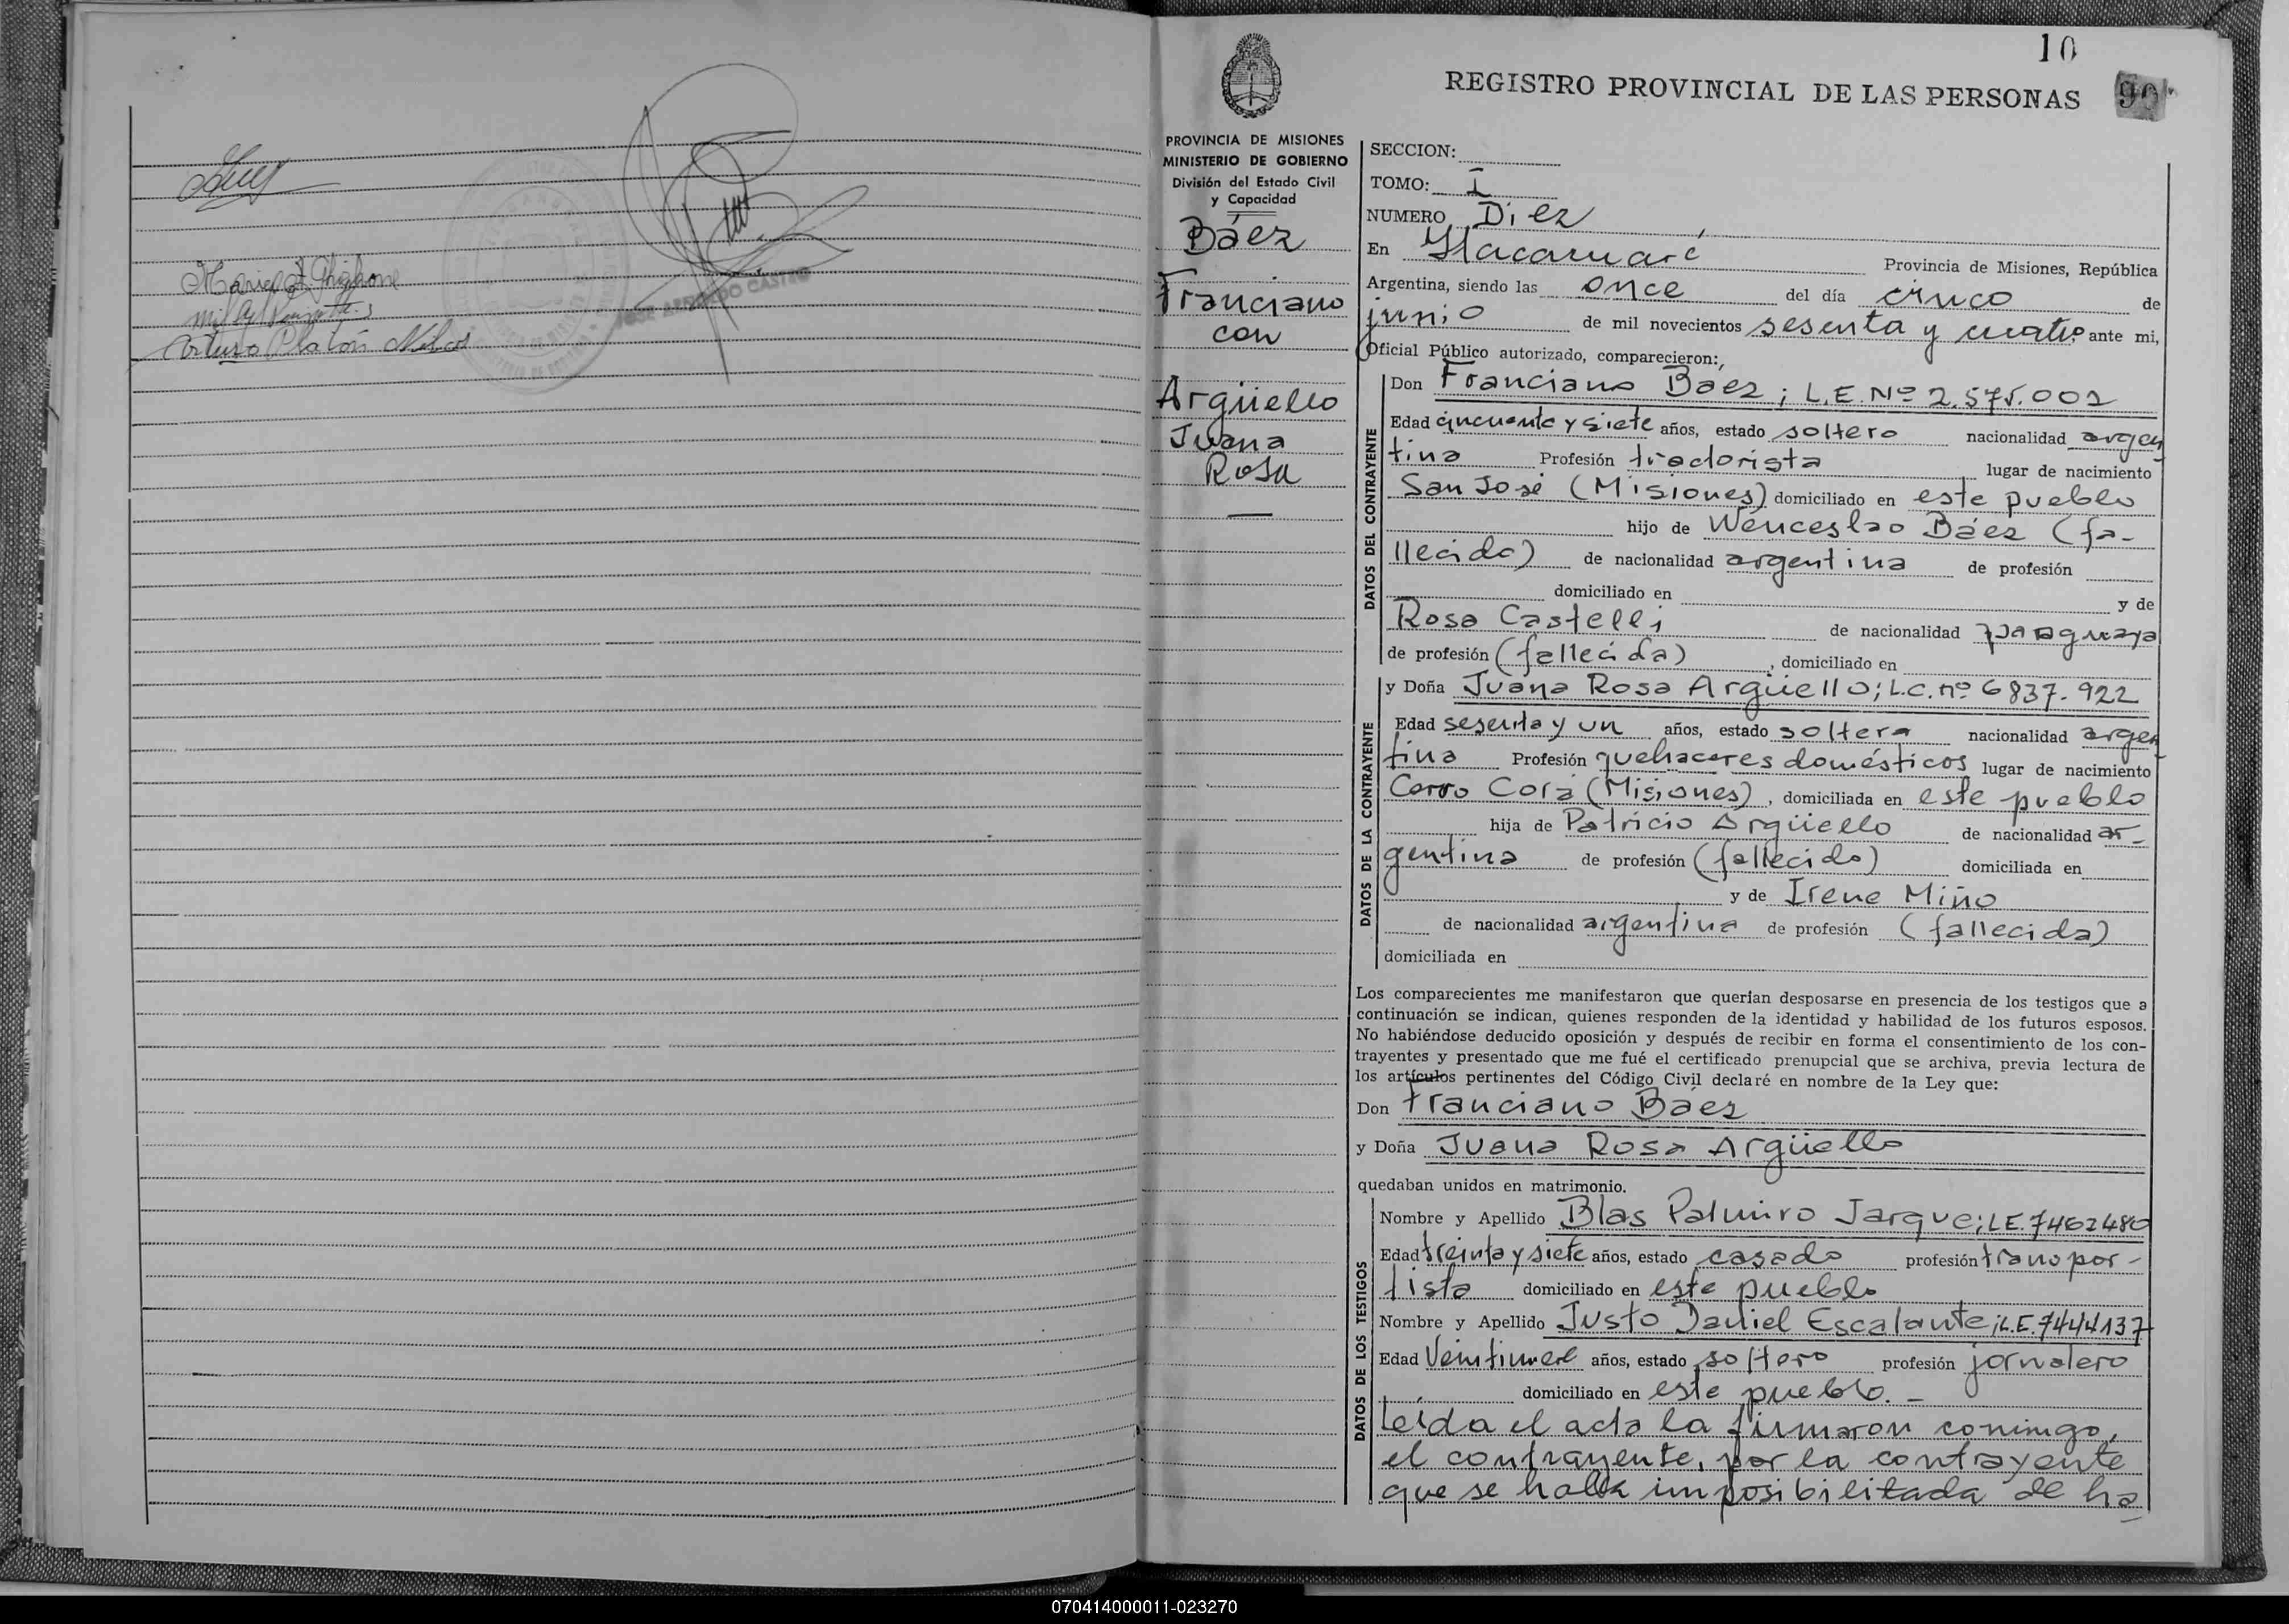 JOSE ARMANDO CASTRO
Arturo Platón
10
REGISTRO PROVINCIAL DE LAS PERSONAS
90
PROVINCIA DE MISIONES
MINISTERIO DE GOBIERNO
División del Estado Civil
y Capacidad
Báez
Franciano
con
Argüello
Juana
Rosa
SECCION:
TOMO: I
NUMERO Diez
En Itacaruaré Provincia de Misiones, República
Argentina, siendo las once del día cinco de
junio de mil novecientos sesenta y cuatro ante mi,
Oficial Público autorizado, comparecieron:
DATOS DEL CONTRAYENTE
Don Franciano Baez; L.E. Nº 2.575.002
Edad cincuenta y siete años, estado soltero nacionalidad argen
tina Profesión tractorista lugar de nacimiento
San José (Misiones) domiciliado en este pueblo
hijo de Wenceslao Báez (fa-
llecido) de nacionalidad argentina de profesión
domiciliado en y de
Rosa Castelli de nacionalidad paraguaya
de profesión (fallecida), domiciliado en
DATOS DE LA CONTRAYENTE
y Doña Juana Rosa Argüello; L.C. nº 6837.922
Edad sesenta y un años, estado soltera nacionalidad argen
tina Profesión quehaceres domésticos lugar de nacimiento
Cerro Corá (Misiones), domiciliada en este pueblo
hija de Patricio Argüello de nacionalidad ar-
gentina de profesión (fallecido) domiciliada en
y de Irene Miño
de nacionalidad argentina de profesión (fallecida)
domiciliada en
Los comparecientes me manifestaron que querían desposarse en presencia de los testigos que a
continuación se indican, quienes responden de la identidad y habilidad de los futuros esposos.
No habiéndose deducido oposición y después de recibir en forma el consentimiento de los con-
trayentes y presentado que me fué el certificado prenupcial que se archiva, previa lectura de
los artículos pertinentes del Código Civil declaré en nombre de la Ley que:
Don Franciano Baez
y Doña Juana Rosa Argüello
quedaban unidos en matrimonio.
DATOS DE LOS TESTIGOS
Nombre y Apellido Blas Palmiro Jarque; L.E. 7462480
Edad treinta y siete años, estado casado profesión transpor-
tista domiciliado en este pueblo
Nombre y Apellido Justo Daniel Escalante; L.E. 7444137
Edad años, estado soltero profesión jornalero
domiciliado en este pueblo. -
Leida el acta la firmaron conmigo,
el contrayente, por la contrayente
que se halla imposibilitada de ha
070414000011-023270